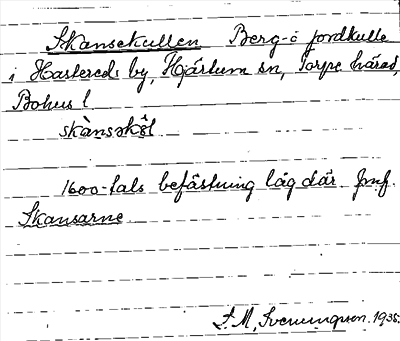 Skansekullen Berg- o jordkulle
i Hastereds by, Hjärtum sn, Torpe härad,
Bohus l
skànsəkə̂l
1600-tals befästning låg där Jmf.
Skansarne
S. M, Svenungsson. 1935.